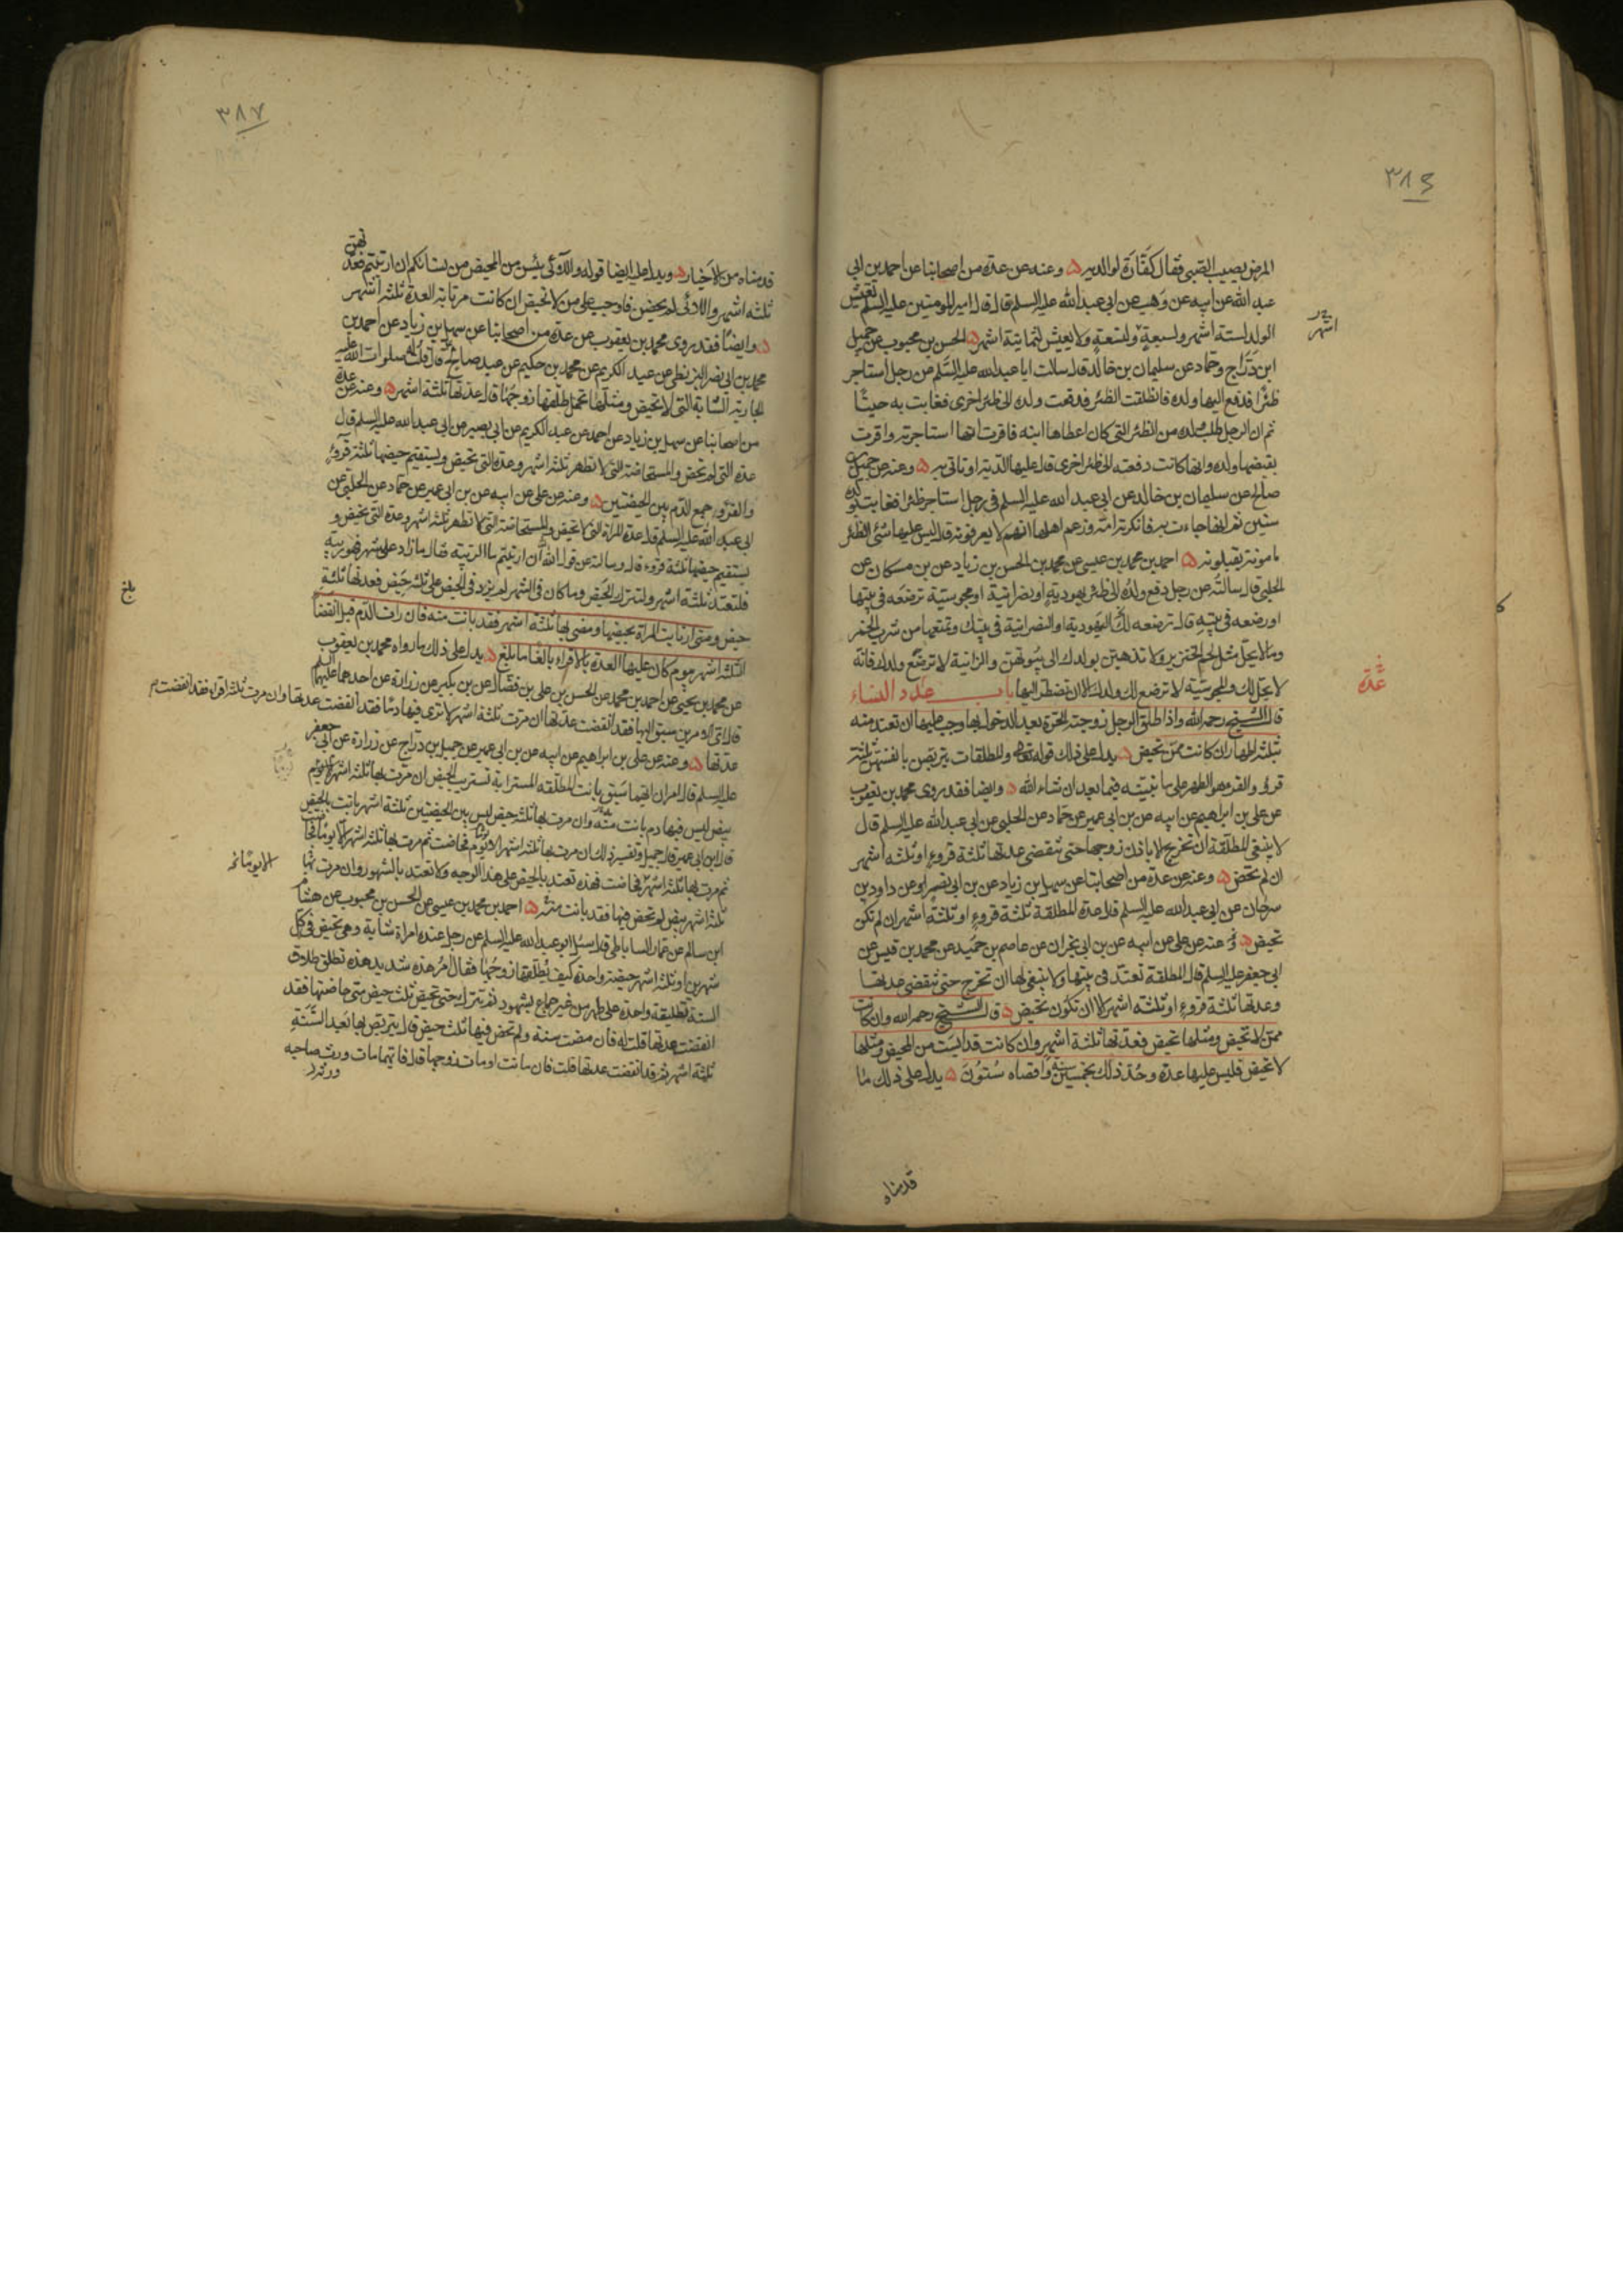 ٣٨٦
المرض يصيب الصبي فقال كفارة لوالديه ه وعنه عن عدة من اصحابنا عن احمد بن ابي
عبد الله عن ابيه عن وهب عن ابي عبد الله عليه السلم قال قال امير المومنين عليه السلم يعيش
الولد لستة اشهر ولسبعة ولتسعة ولا يعيش لثمانية اشهر ه الحسن بن محبوب عن جميل
اشهر
ابن دراج وحماد عن سليمان بن خالد قال سالت ابا عبد الله عليه السلم عن رجل استاجر
ظئرا فدفع اليها ولده فانطلقت الظئر فدفعت ولده الى ظئر اخرى فغابت به حينا
ثم ان الرجل طلب ولده من الظئر التي كان اعطاها ابنه فاقرت انها استاجرته واقرت
بقبضها ولده وانها كانت دفعته الى ظئر اخرى قال عليها الدية او تاتي به ه وعنه عن جميل بن
صالح عن سليمان بن خالد عن ابي عبد الله عليه السلم في رجل استاجر ظئرا فغابت بولده
سنين ثم انها جاءت به فانكرته امه وزعم اهلها انهم لا يعرفونه قال ليس عليها شئ الظئر
مامونة يقبلونه ه احمد بن محمد بن عيسى عن محمد بن الحسن بن زياد عن بن مسكان عن
الحلبي قال سالته عن رجل دفع ولده الى ظئر يهودية او نصرانية او مجوسية ترضعه في بيتها
او ترضعه في بيته قال ترضعه لك اليهودية والنصرانية في بيتك وتمنعها من شرب الخمر
وما لا يحل مثل لحم الخنزير ولا تذهبن بولدك الى بيوتهن والزانية لا ترضع ولدك فانه
لا يحل لك والمجوسية لا ترضع لك ولدك الا ان تضطر اليها باب عدد النساء
عدة
قال الشيخ رحمه الله واذا طلق الرجل زوجته الحرة بعد الدخول بها وجب عليها ان تعتد منه
بثلثة اطهار ان كانت ممن تحيض ه يدل على ذلك قوله تعالى والمطلقات يتربصن بانفسهن ثلثة
قروء والقرء هو الطهر على ما نبينه فيما بعد ان شاء الله ه وايضا فقد روى محمد بن يعقوب
عن علي بن ابراهيم عن ابيه عن بن ابي عمير عن حماد عن الحلبي عن ابي عبد الله عليه السلم قال
لا ينبغي للمطلقة ان تخرج الا باذن زوجها حتى تنقضي عدتها ثلثة قروء او ثلثه اشهر
ان لم تحض ه وعنه عن عدة من اصحابنا عن سهل بن زياد عن بن ابي نصر عن داود بن
سرحان عن ابي عبد الله عليه السلم قال عدة المطلقة ثلثة قروء او ثلثة اشهر ان لم تكن
تحيض ه وعنه عن علي عن ابيه عن بن ابي نجران عن عاصم بن حميد عن محمد بن قيس عن
ابي جعفر عليه السلم قال المطلقة تعتد في بيتها ولا ينبغي لها ان تخرج حتى تنقضي عدتها
وعدتها ثلثة قروء او ثلثه اشهر الا ان تكون تحيض ه قال الشيخ رحمه الله وان كانت
ممن لا تحيض ومثلها تحيض فعدتها ثلثة اشهر وان كانت قد ايست من المحيض ومثلها
لا تحيض فليس عليها عدة وحد ذلك بخمسين سنة واقصاه ستون ه يدل على ذلك ما
قدمناه
٣٨٧
قدمناه من الاخبار ه ويدل عليه ايضا قوله واللائي يئسن من المحيض من نسائكم ان ارتبتم فعدتهن
ثلثه اشهر واللائي لم يحضن فاوجب على من لا تحيض ان كانت مرتابة العدة ثلثه اشهر
ه وايضا فقد روى محمد بن يعقوب عن عدة من اصحابنا عن سهل بن زياد عن احمد بن
محمد بن ابي نصر البزنطي عن عبد الكريم عن محمد بن حكيم عن عبد صالح قال قلت له صلوات الله عليه
الجارية الشابة التي لا تحيض ومثلها تحمل طلقها زوجها قال عدتها ثلثة اشهر ه وعنه عن عدة
من اصحابنا عن سهل بن زياد عن احمد عن عبد الكريم عن ابي بصير عن ابي عبد الله عليه السلم قال
عدة التي لم تحض والمستحاضة التي لا تطهر ثلثة اشهر وعدة التي تحيض ويستقيم حيضها ثلثة قروء
والقرء جمع الدم بين الحيضتين ه وعنه عن علي عن ابيه عن بن ابي عمير عن حماد عن الحلبي عن
ابي عبد الله عليه السلم قال عدة المراة التي لا تحيض والمستحاضة التي لا تطهر ثلثه اشهر وعدة التي تحيض و
يستقيم حيضها ثلثة قروء قال وسالته عن قول الله ان ارتبتم ما الريبة فقال ما زاد على شهر فهو ريبة
فلتعتد ثلثه اشهر ولتترك الحيض وما كان في الشهر لم يزد في الحيض على ثلث حيض فعدتها ثلثة
بلغ
حيض ومتى ارتابت المراة بحيضها ومضى لها ثلثة اشهر فقد بانت منه فان رات الدم قبل انقضاء
الثلثة اشهر بيوم كان عليها العدة بالاقراء بالغا ما بلغ ه يدل على ذلك ما رواه محمد بن يعقوب
عن محمد بن يحيى عن احمد بن محمد عن الحسن بن علي بن فضال عن بن بكير عن زرارة عن احدهما عليهما السلم
قال اي الامرين سبق اليها فقد انقضت عدتها ان مرت ثلثة اشهر لا ترى فيها دما فقد انقضت عدتها وان مرت ثلثة اقراء فقد انقضت
عدتها ه وعنه عن علي بن ابراهيم عن ابيه عن بن ابي عمير عن جميل بن دراج عن زرارة عن ابي جعفر
عليه السلم قال امران ايهما سبق بانت المطلقه المسترابة تستريب الحيض ان مرت بها ثلثه اشهر
بيض ليس فيها دم بانت منه وان مرت بها ثلثه حيض ليس بين الحيضتين ثلثة اشهر بانت بالحيض
قال ابن ابي عمير قال جميل وتفسير ذلك ان مرت بها ثلثه اشهر الا يوم فحاضت ثم مرت بها ثلثه اشهر الا يوما
الا يوما
ثم مرت بها ثلثه اشهر فحاضت فهذه تعتد بالحيض على هذا الوجه ولا تعتد بالشهور وان مرت بها
ثلثه اشهر بيض لم تحض فيها فقد بانت منه ه احمد بن محمد بن عيسى عن الحسن بن محبوب عن هشام
ابن سالم عن عمار الساباطي قال سئل ابو عبد الله عليه السلم عن رجل عنده امراة شابة وهي تحيض في كل
شهرين او ثلثه اشهر حيضة واحدة كيف يطلقها زوجها فقال امر هذه شديد هذه تطلق طلاق
السنة تطليقة واحدة على طهر من غير جماع بشهود ثم تترك حتى تحيض ثلث حيض متى حاضتها فقد
انقضت عدتها قلت له فان مضت سنة ولم تحض فيها ثلث حيض قال يتربص بها بعد السنة
ثلثة اشهر ثم قد انقضت عدتها قلت فان ماتت او مات زوجها قال فايهما مات ورث صاحبه